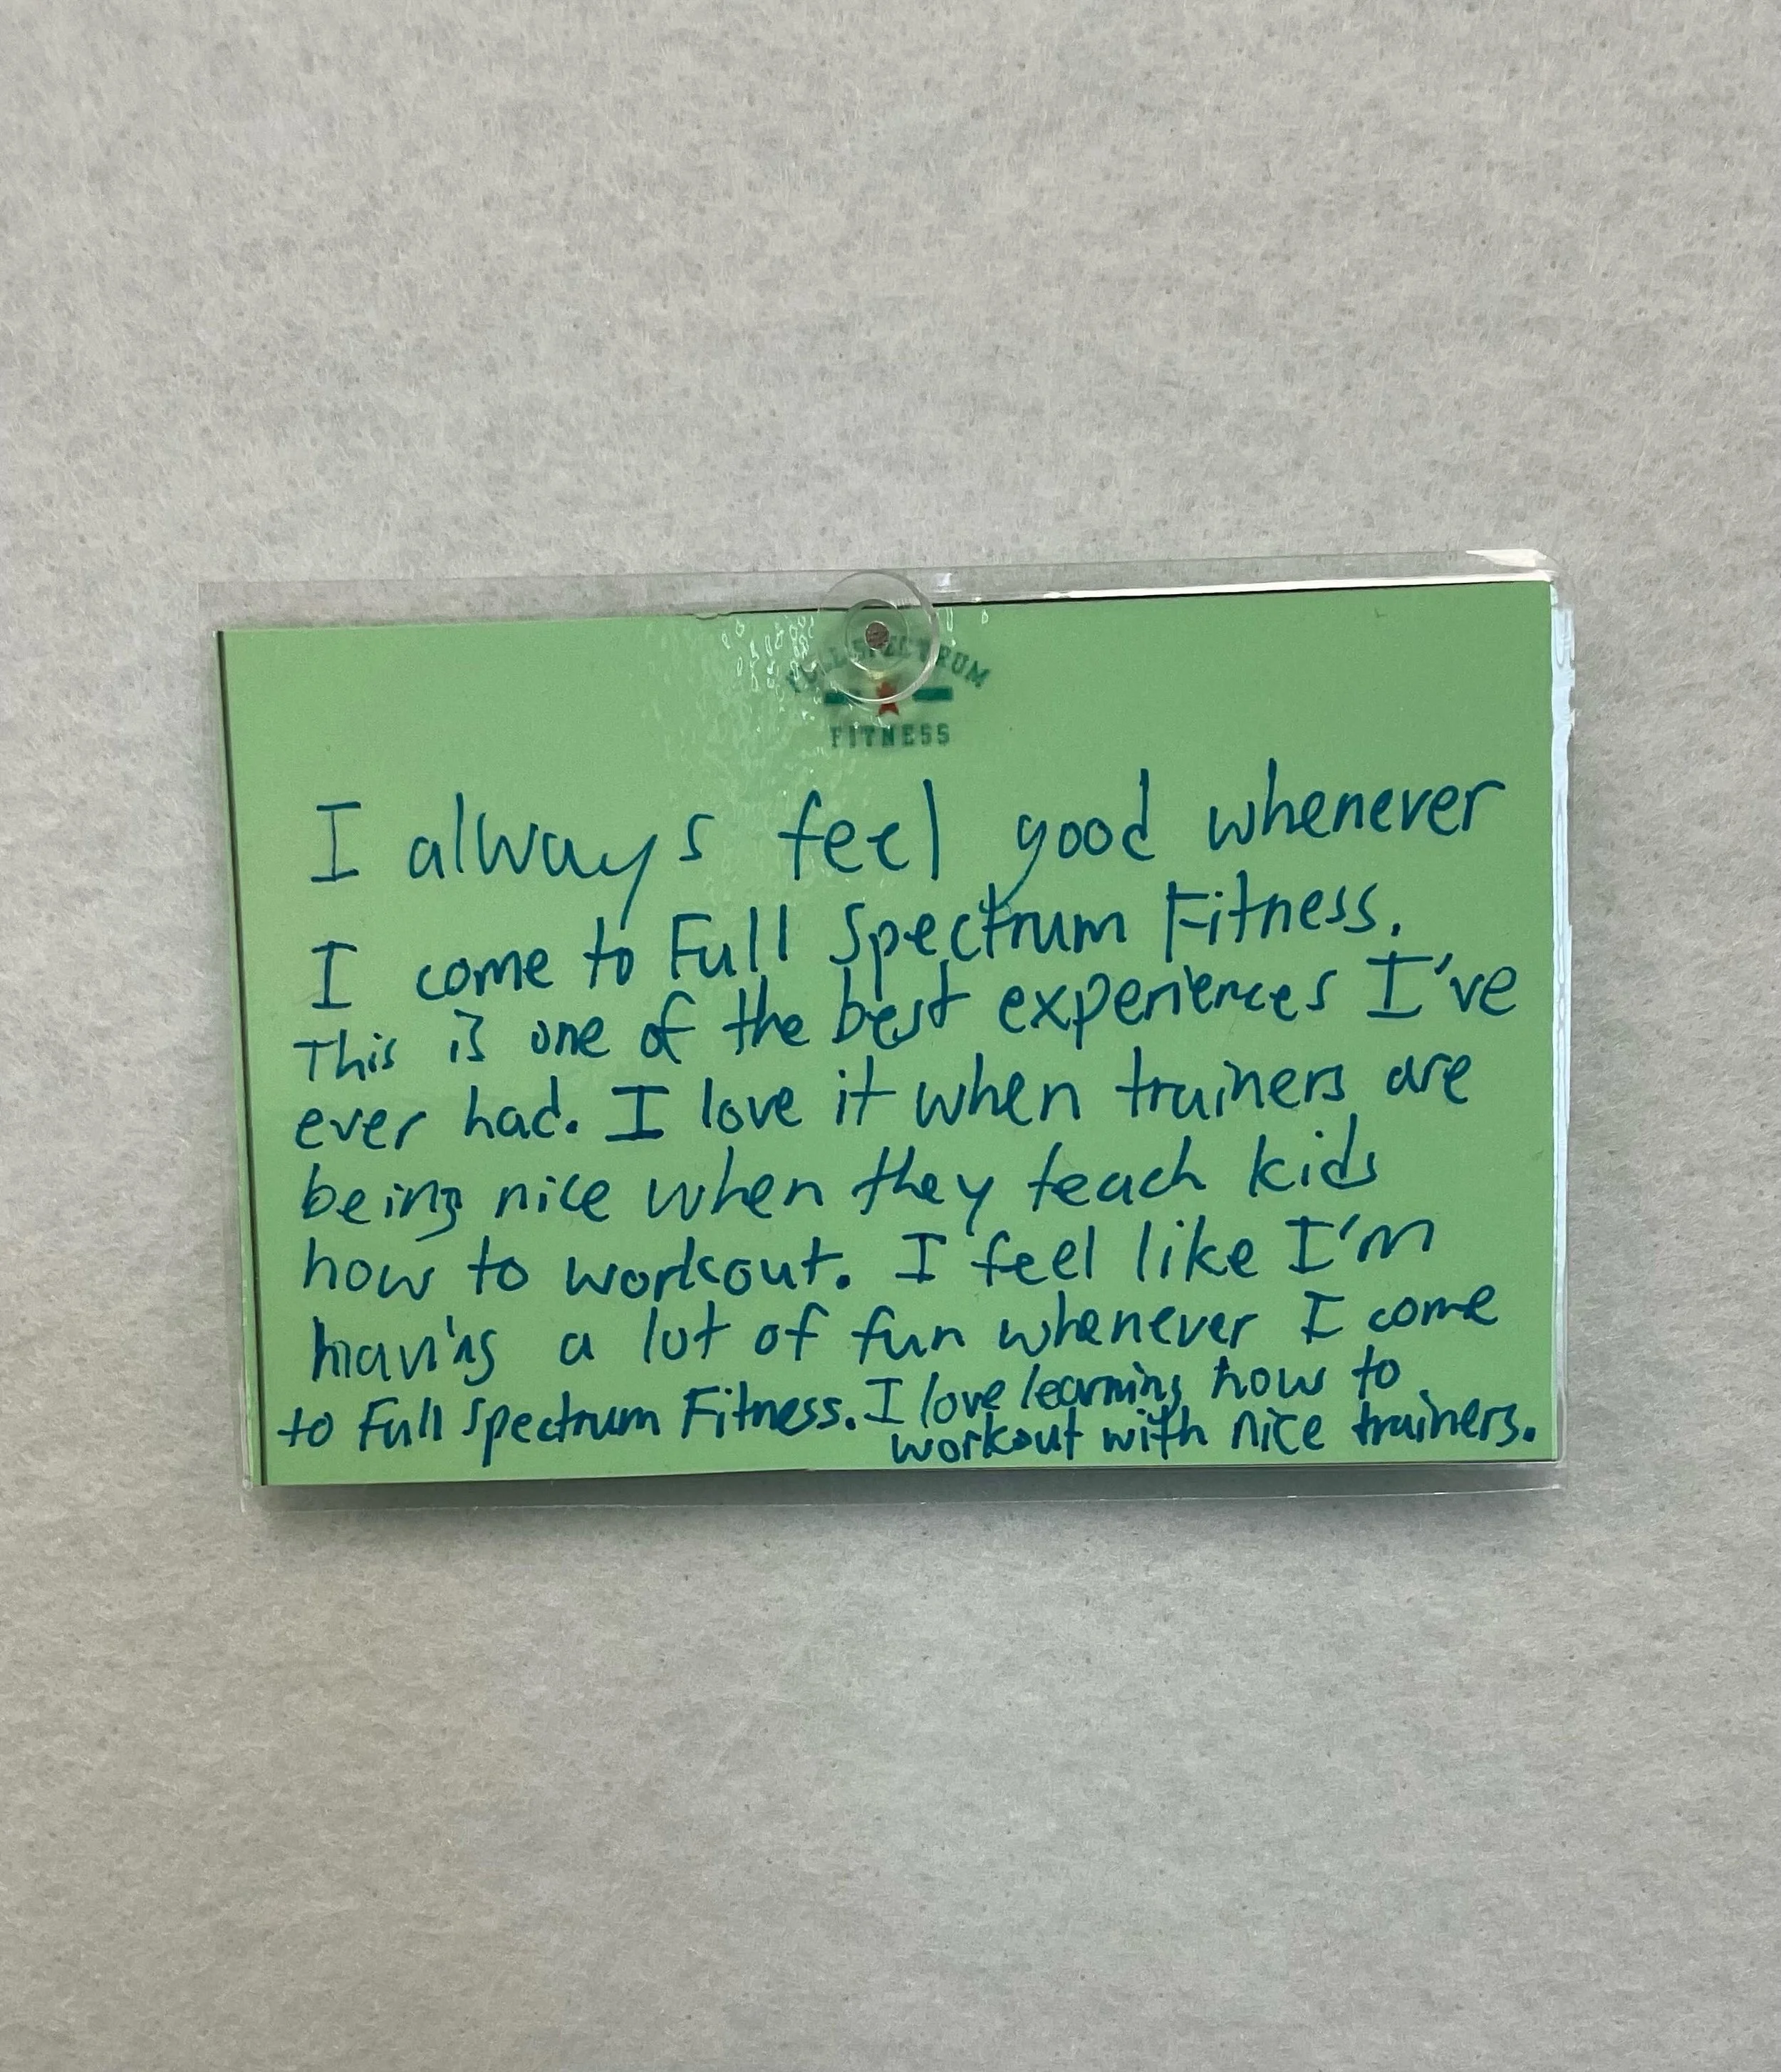 FULL SPECTRUM
FITNESS
I always feel good whenever
I come to Full Spectrum Fitness.
This is one of the best experiences I've
ever had. I love it when trainers are
being nice when they teach kids
how to workout. I feel like I'm
having a lot of fun whenever I come
to Full Spectrum Fitness. I love learning how to
workout with nice trainers.